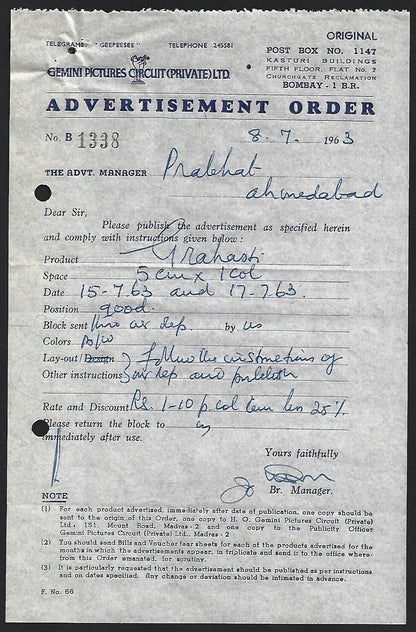 ORIGINAL
TELEGRAMS "GEEPEESEE" TELEPHONE 245581
POST BOX NO. 1147
KASTURI BUILDINGS
GEMINI PICTURES CIRCUIT (PRIVATE) LTD.
FIFTH FLOOR, FLAT No. 2
CHURCHGATE RECLAMATION
BOMBAY - 1 B.R.
ADVERTISEMENT ORDER
No. B 1338 8. 7. 1963
THE ADVT. MANAGER Prabhat
ahmedabad
Dear Sir,
Please publish the advertisement as specified herein
and comply with instructions given below :
Product Grahasti
Space 5 cm x 1 col
Date 15-7.63 and 17-7.63.
Position good
Block sent thro our rep by us
Colors
Lay-out/Design follow the instructions of
Other instructions our rep and publish
Rate and Discount Rs. 1-10 p. col cm less 25%
Please return the block to us
immediately after use.
Yours faithfully
Br. Manager.
NOTE
(1) For each product advertised, immediately after date of publication, one copy should be
sent to the origin of this Order, one copy to H. O. Gemini Pictures Circuit (Private)
Ltd., 151, Mount Road, Madras-2 and one copy to the Publicity Officer
Gemini Pictures Circuit (Private) Ltd., Madras-2
(2) You should send Bills and Voucher tear sheets for each of the products advertised for the
months in which the advertisements appear, in triplicate and send it to the office where-
from this Order emanated, for scrutiny.
(3) It is particularly requested that the advertisement should be published as per instructions
and on dates specified. Any change or deviation should be intimated in advance.
F. No. 66